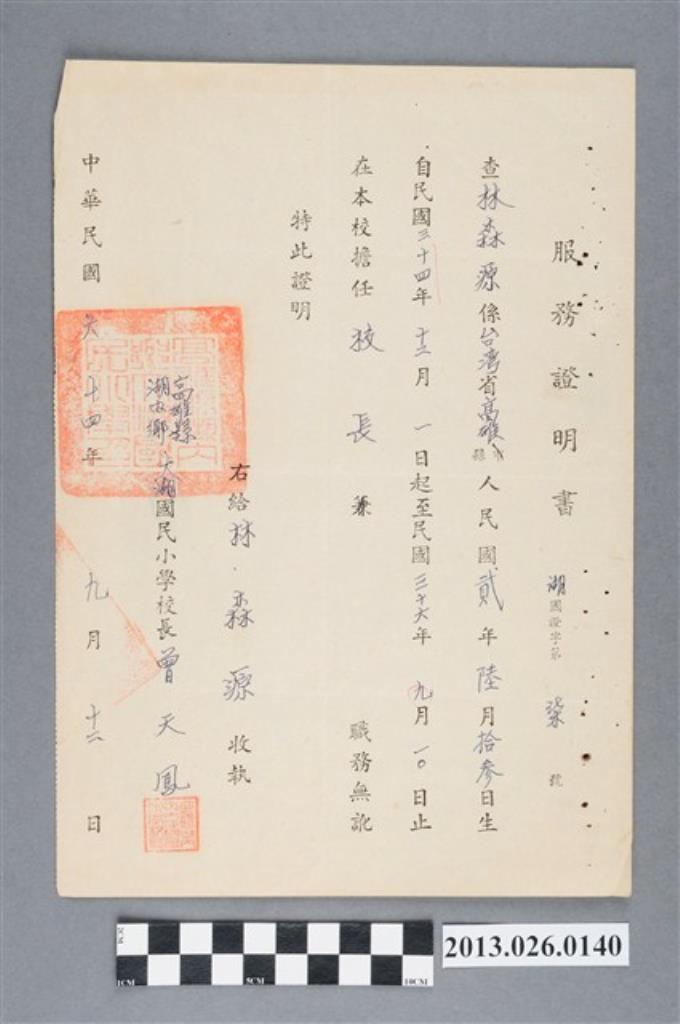 服務證明書 湖國證字第柒號
查林森源係台湾省高雄市縣人民國貳年陸月拾参日生
自民國三十四年十二月一日起至民國三十六年九月一〇日止
在本校擔任校長兼 職務無訛
特此證明
右給林森源收執
高雄縣湖內鄉大湖國民小學校長曾天鳳
中華民國 十四年九月十二日
2CM
1CM
5CM
10CM
2013.026.0140